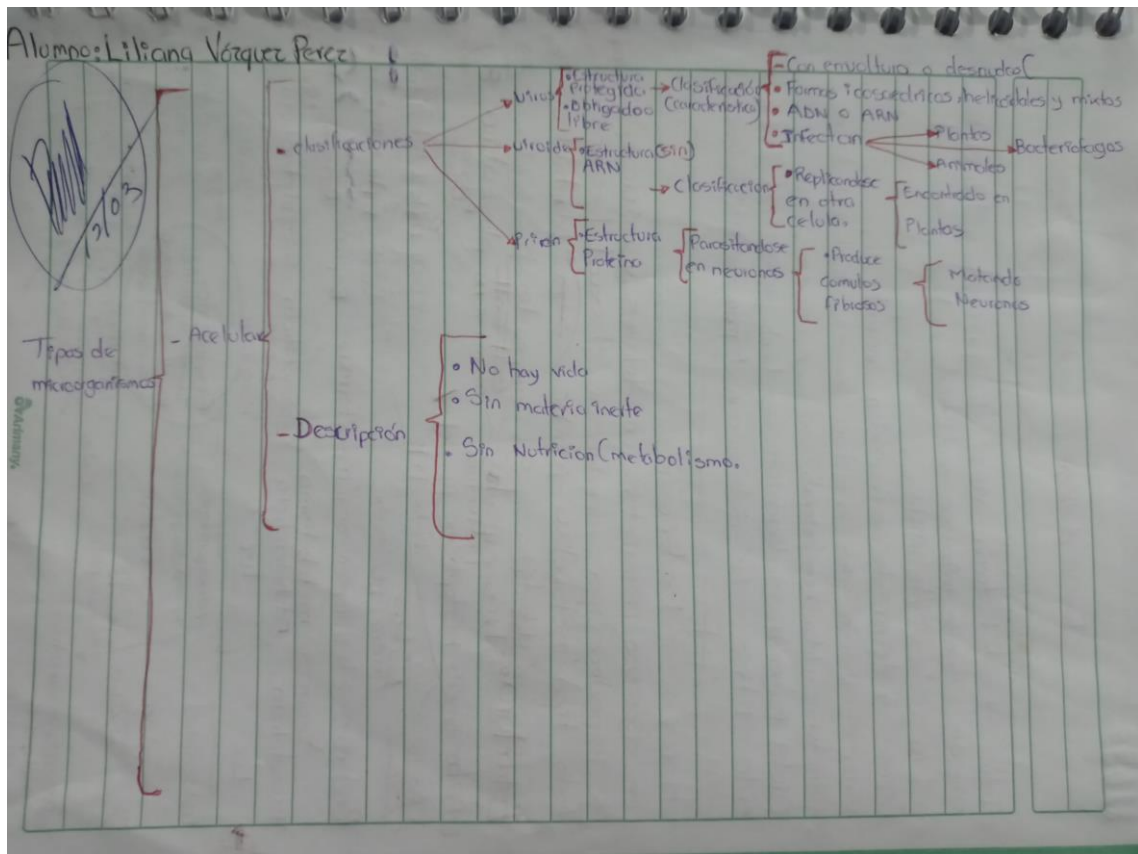 Alumno: Liliana Vázquez Perez
Tipos de
microorganismos
- Acelular
• clasificaciones
Virus
• Estructura
Protegida
• Obligados
libre
Clasificación
(caracteristica)
- Con envoltura o desnudos
• Formas icosaedricas, helicoidales y mixtas
• ADN o ARN
• Infectan
Planta
Bacteriofagos
Animales
Viroide
• Estructura (sin)
ARN
Clasificación
• Replicandose
en otra
celula.
Encontrado en
Plantas
Prion
• Estructura
Proteina
Parasitandose
en neuronas
• Produce
cumulos
fibrosos
Matando
Neuronas
- Descripción
• No hay vida
• Sin materia inerte
• Sin Nutricion (metabolismo.